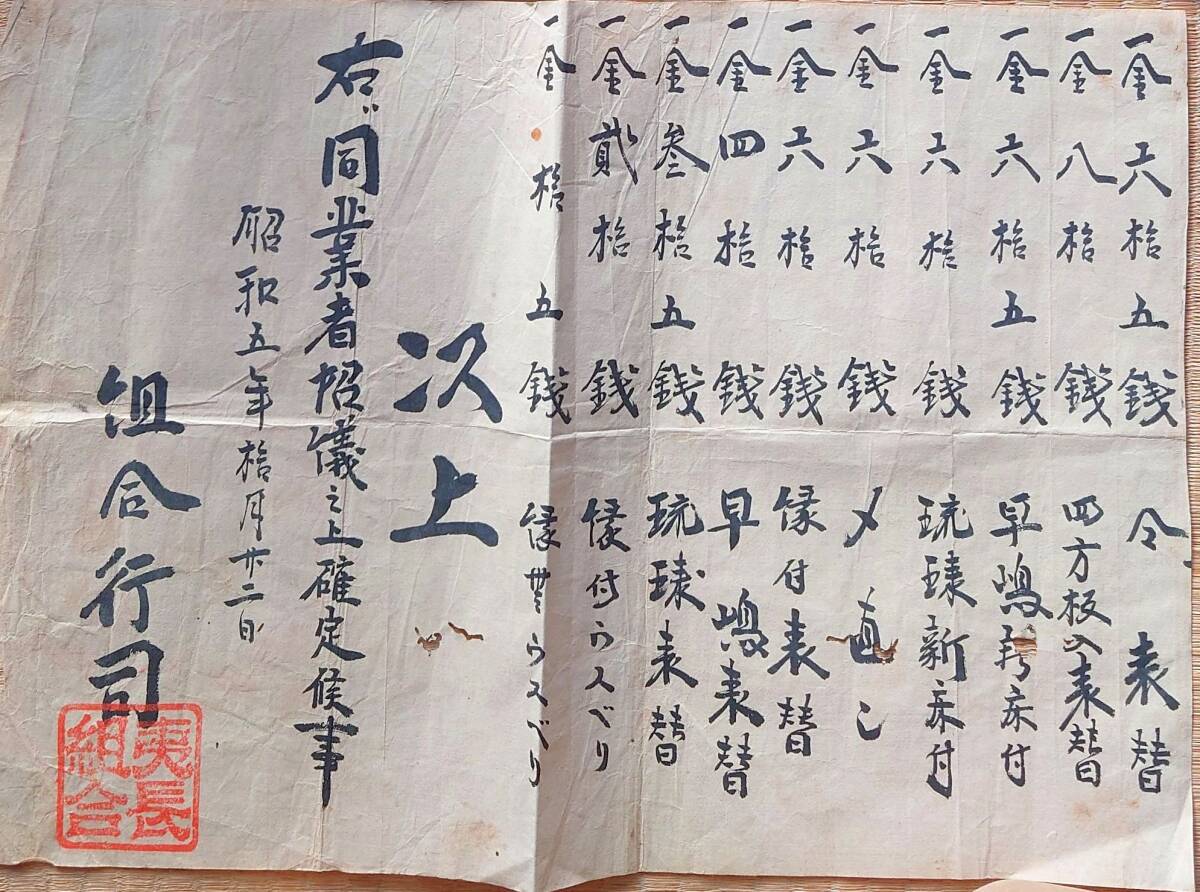 一金六拾五錢 仝表替
一金八拾錢 四方板入表替
一金六拾五錢 早嶋新床付
一金六拾錢 琉球新床付
一金六拾錢 〆直し
一金六拾錢 縁付表替
一金四拾錢 早嶋表替
一金叁拾五錢 琉球表替
一金貳拾錢 縁付ウスベリ
一金拾五錢 縁無ウスベリ
以上
右ハ同業者招儀之上確定候事
昭和五年拾月廿二日
組合行司
夷長
組合